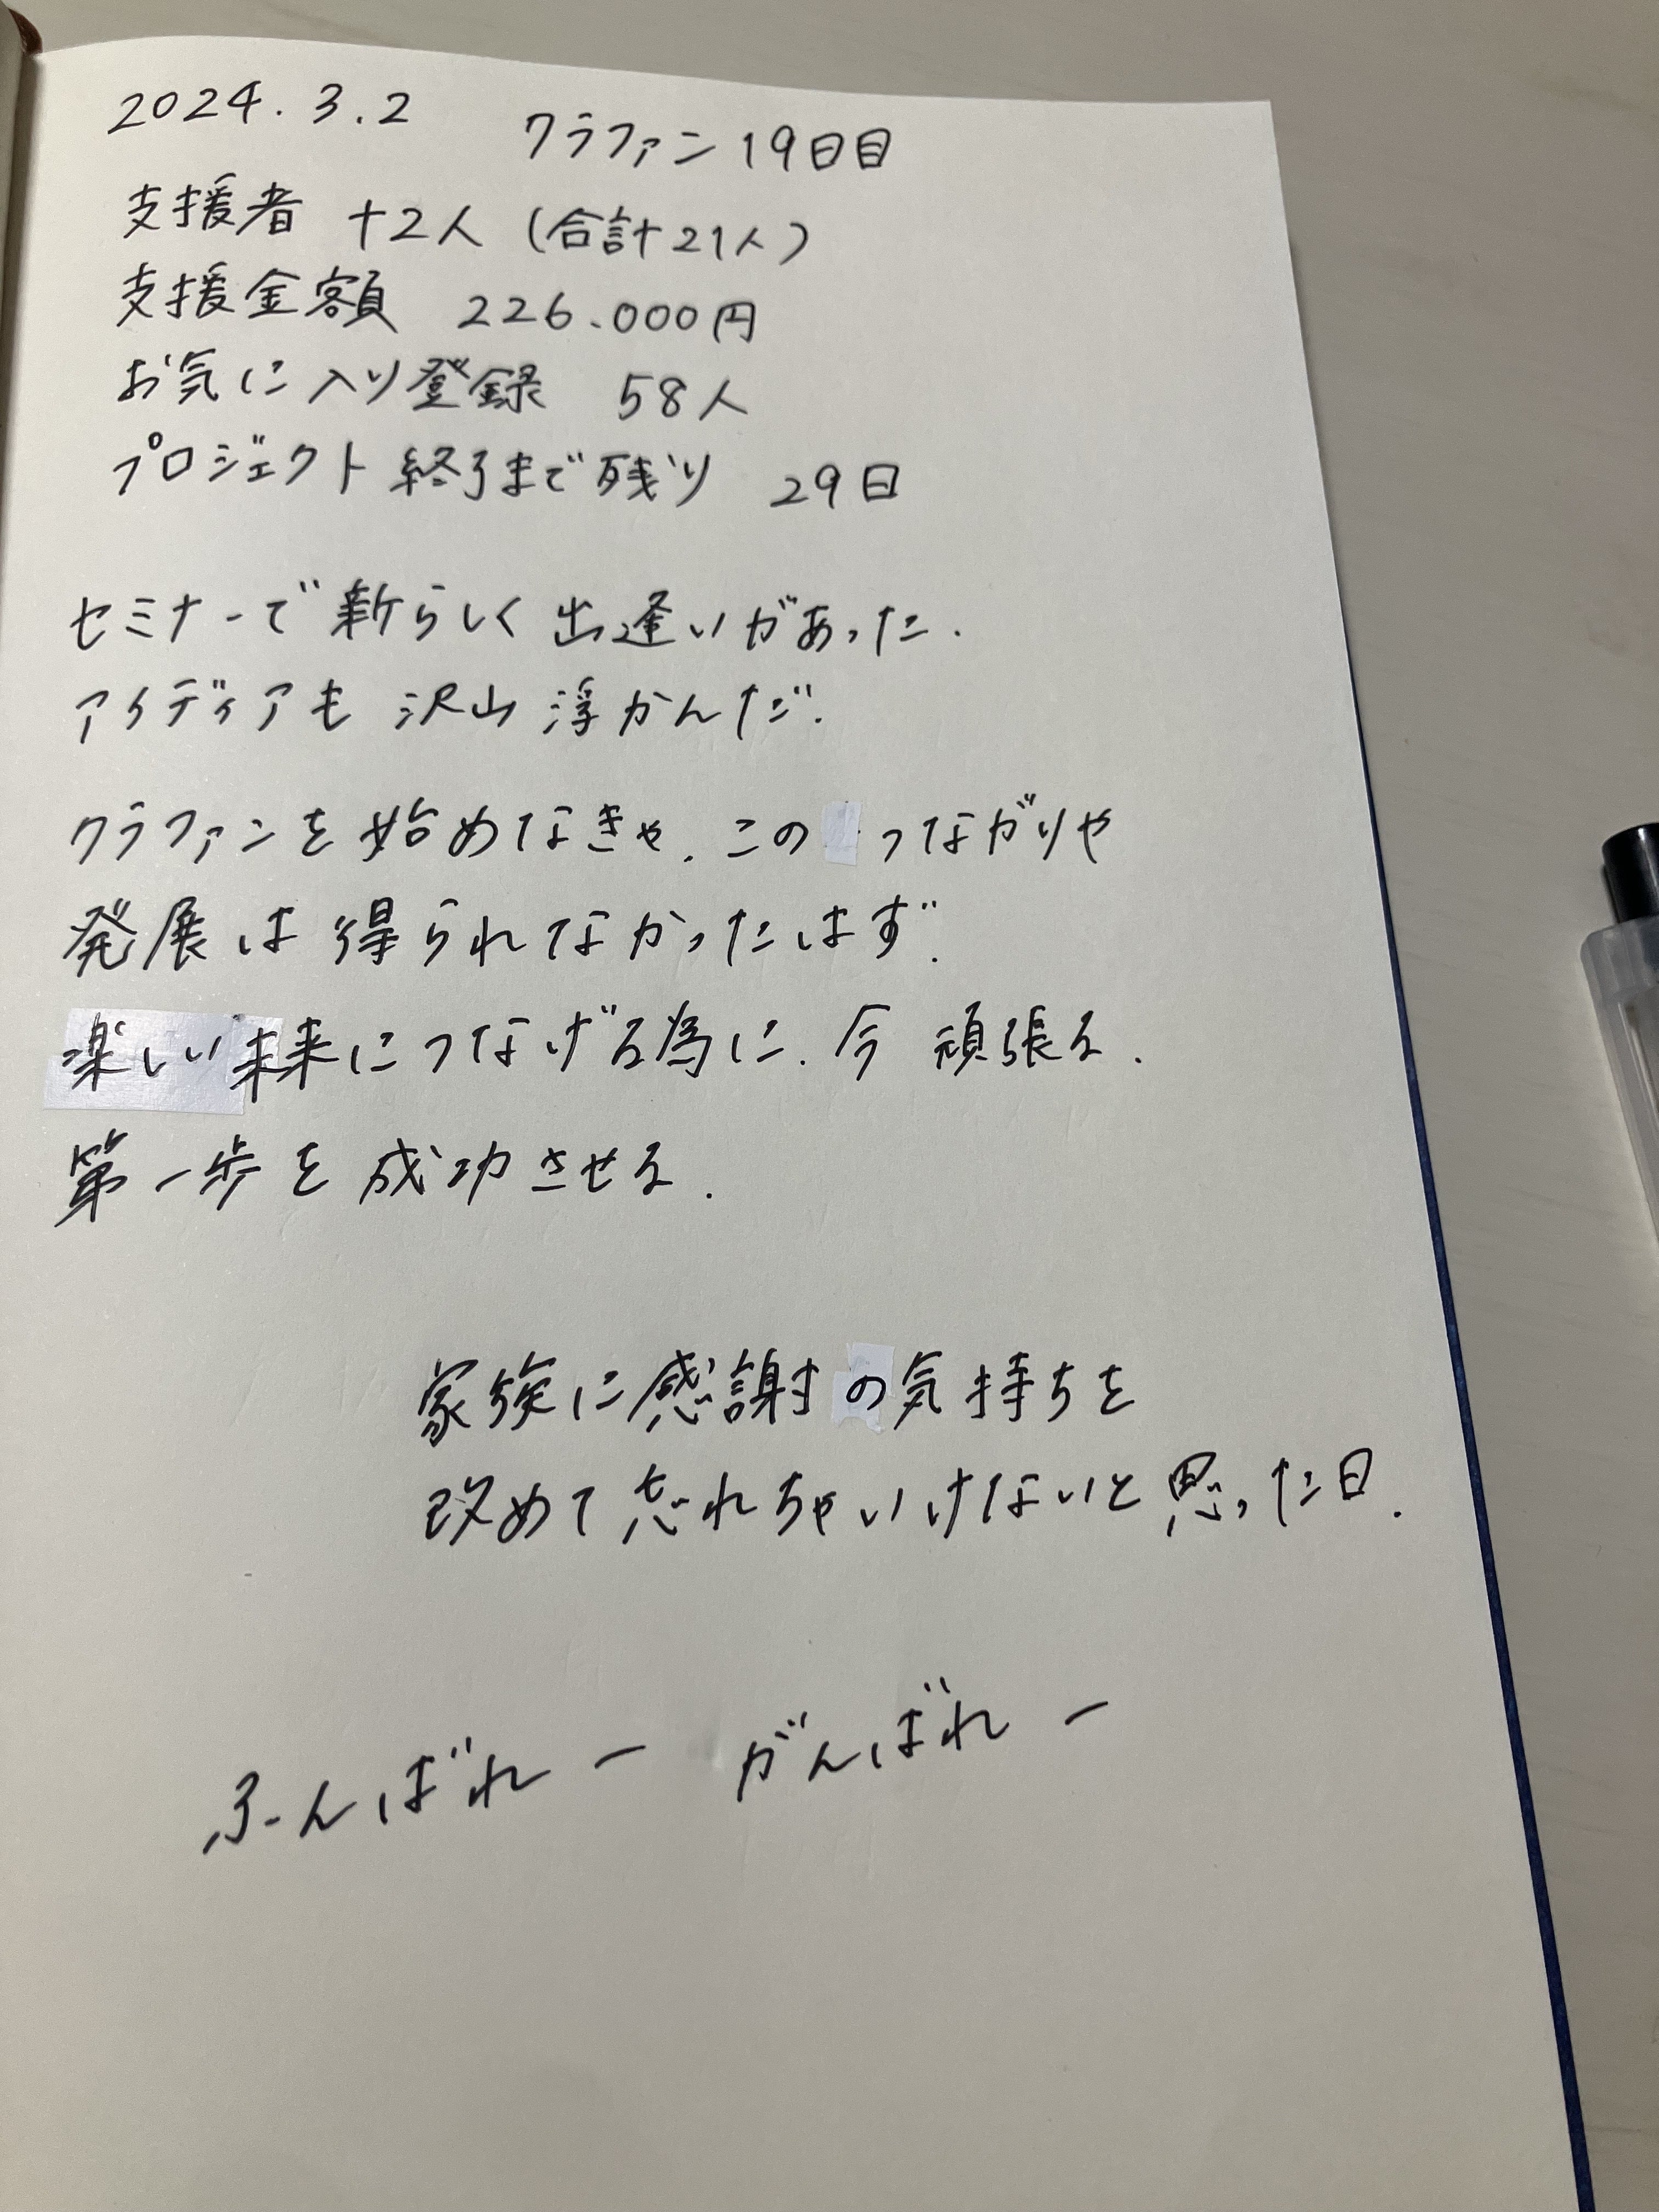 2024.3.2 クラファン19日目
支援者 +2人(合計21人)
支援金額 226.000円
お気に入り登録 58人
プロジェクト終了まで残り 29日
セミナーで新らしく出逢いがあった.
アイディアも沢山浮かんだ.
クラファンを始めなきゃ、この つながりや
発展は得られなかったはず.
楽しい未来につなげる為に、今 頑張る.
第一歩を成功させる.
家族に感謝の気持ちを
改めて忘れちゃいけないと思った日.
ふんばれー がんばれー